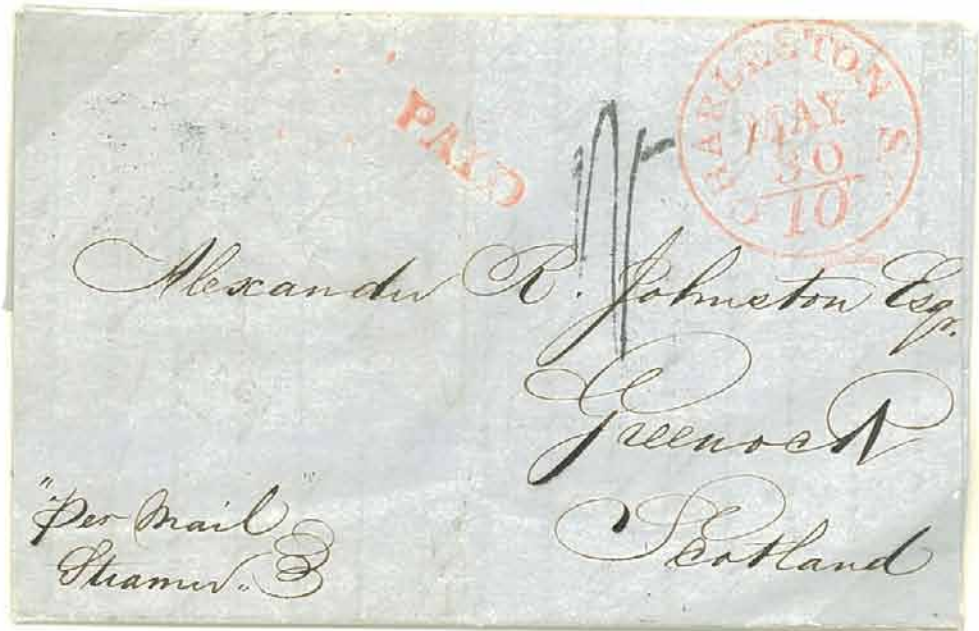 PAID
CHARLESTON S.
MAY
30
10
Alexander R. Johnston Esqr.
Greenock
Scotland
"Per Mail
Steamer"